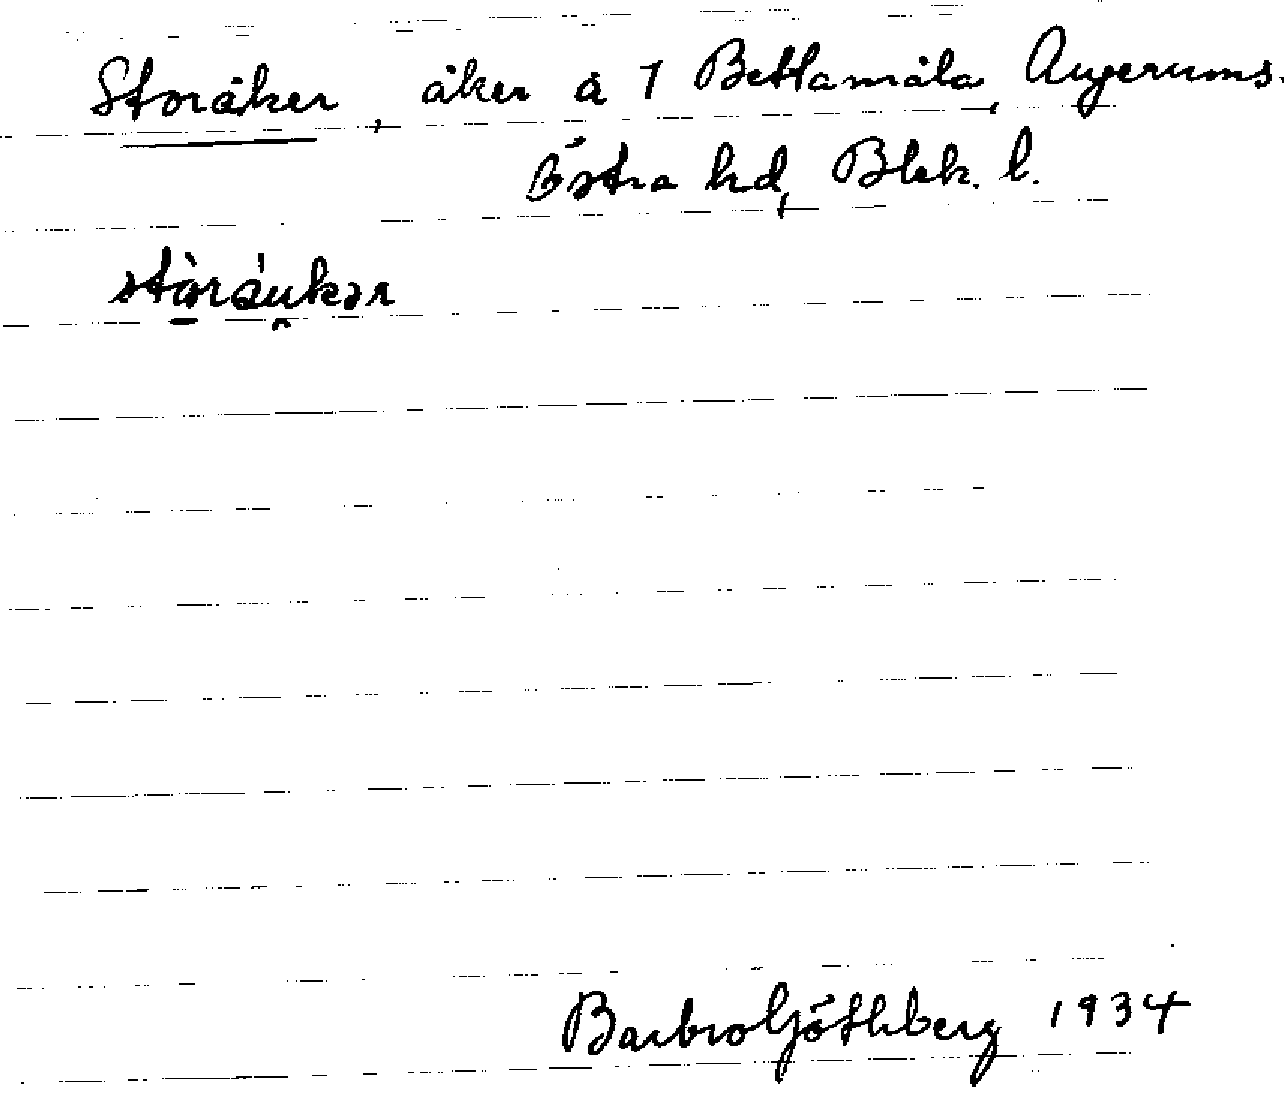 Storåker, åker å 1 Bettamåla, Augerums.
Östra hd, Blek. l.
Barbro Göthberg 1934